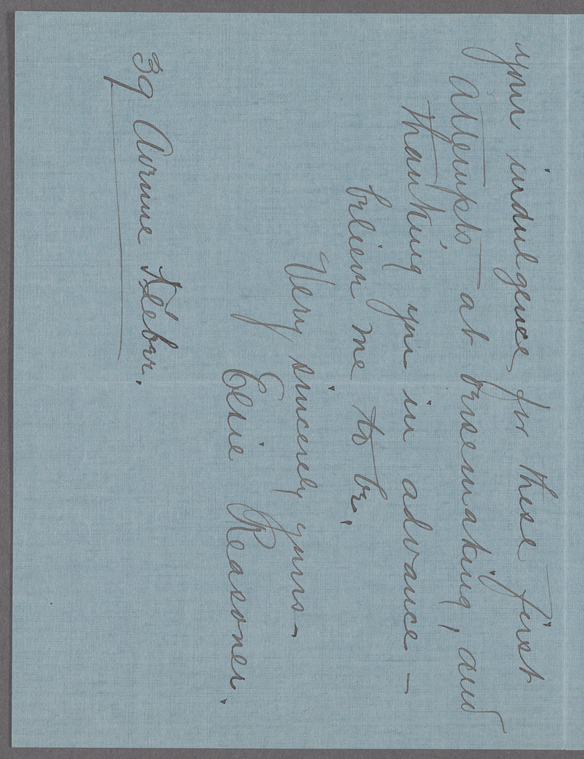 your indulgence, for these first
attempts at versemaking, and
thanking you in advance –
believe me to be,
Very sincerely yours –
Elsie Reasoner.
39 Avenue Kléber.